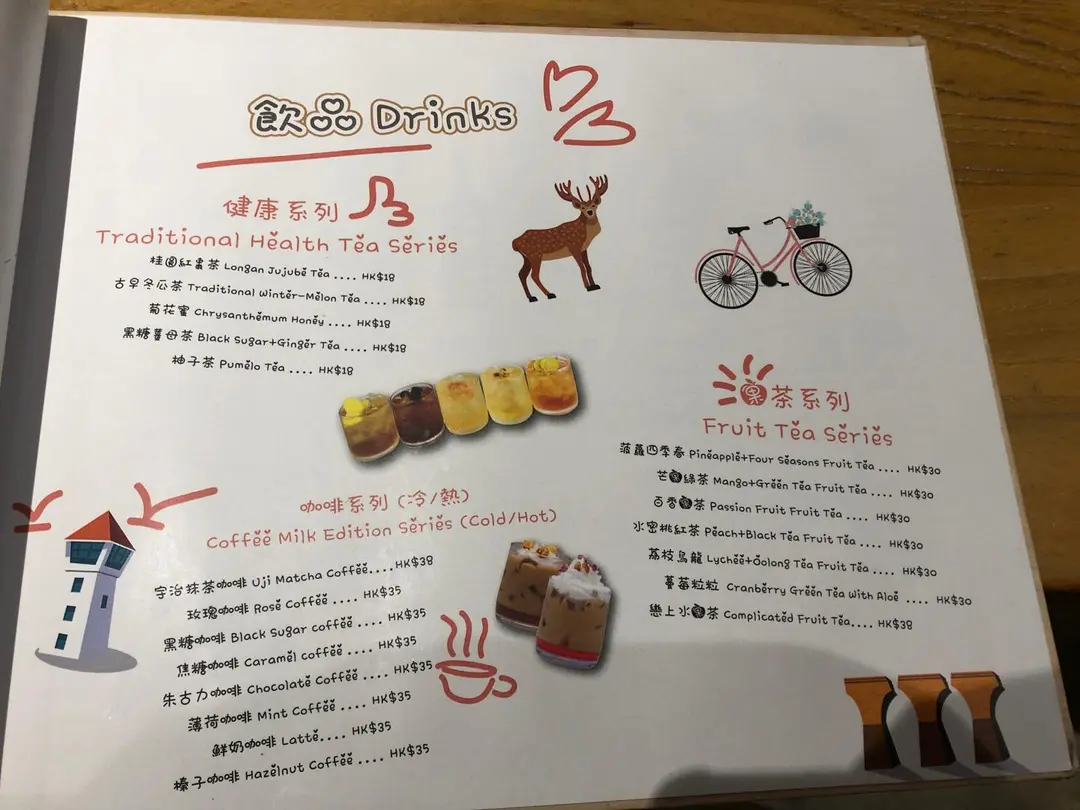 飲品 Drinks
健康系列
Traditional Health Tea Series
桂圓紅棗茶 Longan Jujube Tea .... HK$18
古早冬瓜茶 Traditional Winter-Melon Tea .... HK$18
菊花蜜 Chrysanthemum Honey .... HK$18
黑糖薑母茶 Black Sugar+Ginger Tea .... HK$18
柚子茶 Pumelo Tea .... HK$18
咖啡系列 (冷/熱)
Coffee Milk Edition Series (Cold/Hot)
宇治抹茶咖啡 Uji Matcha Coffee....HK$38
玫瑰咖啡 Rose Coffee .... HK$35
黑糖咖啡 Black Sugar coffee .... HK$35
焦糖咖啡 Caramel coffee .... HK$35
朱古力咖啡 Chocolate Coffee .... HK$35
薄荷咖啡 Mint Coffee .... HK$35
鮮奶咖啡 Latte.... HK$35
榛子咖啡 Hazelnut Coffee .... HK$35
果茶系列
Fruit Tea Series
菠蘿四季春 Pineapple+Four Seasons Fruit Tea .... HK$30
芒果綠茶 Mango+Green Tea Fruit Tea .... HK$30
百香果茶 Passion Fruit Fruit Tea .... HK$30
水密桃紅茶 Peach+Black Tea Fruit Tea .... HK$30
荔枝烏龍 Lychee+Oolong Tea Fruit Tea .... HK$30
蔓莓粒粒 Cranberry Green Tea With Aloe .... HK$30
戀上水果茶 Complicated Fruit Tea.... HK$38